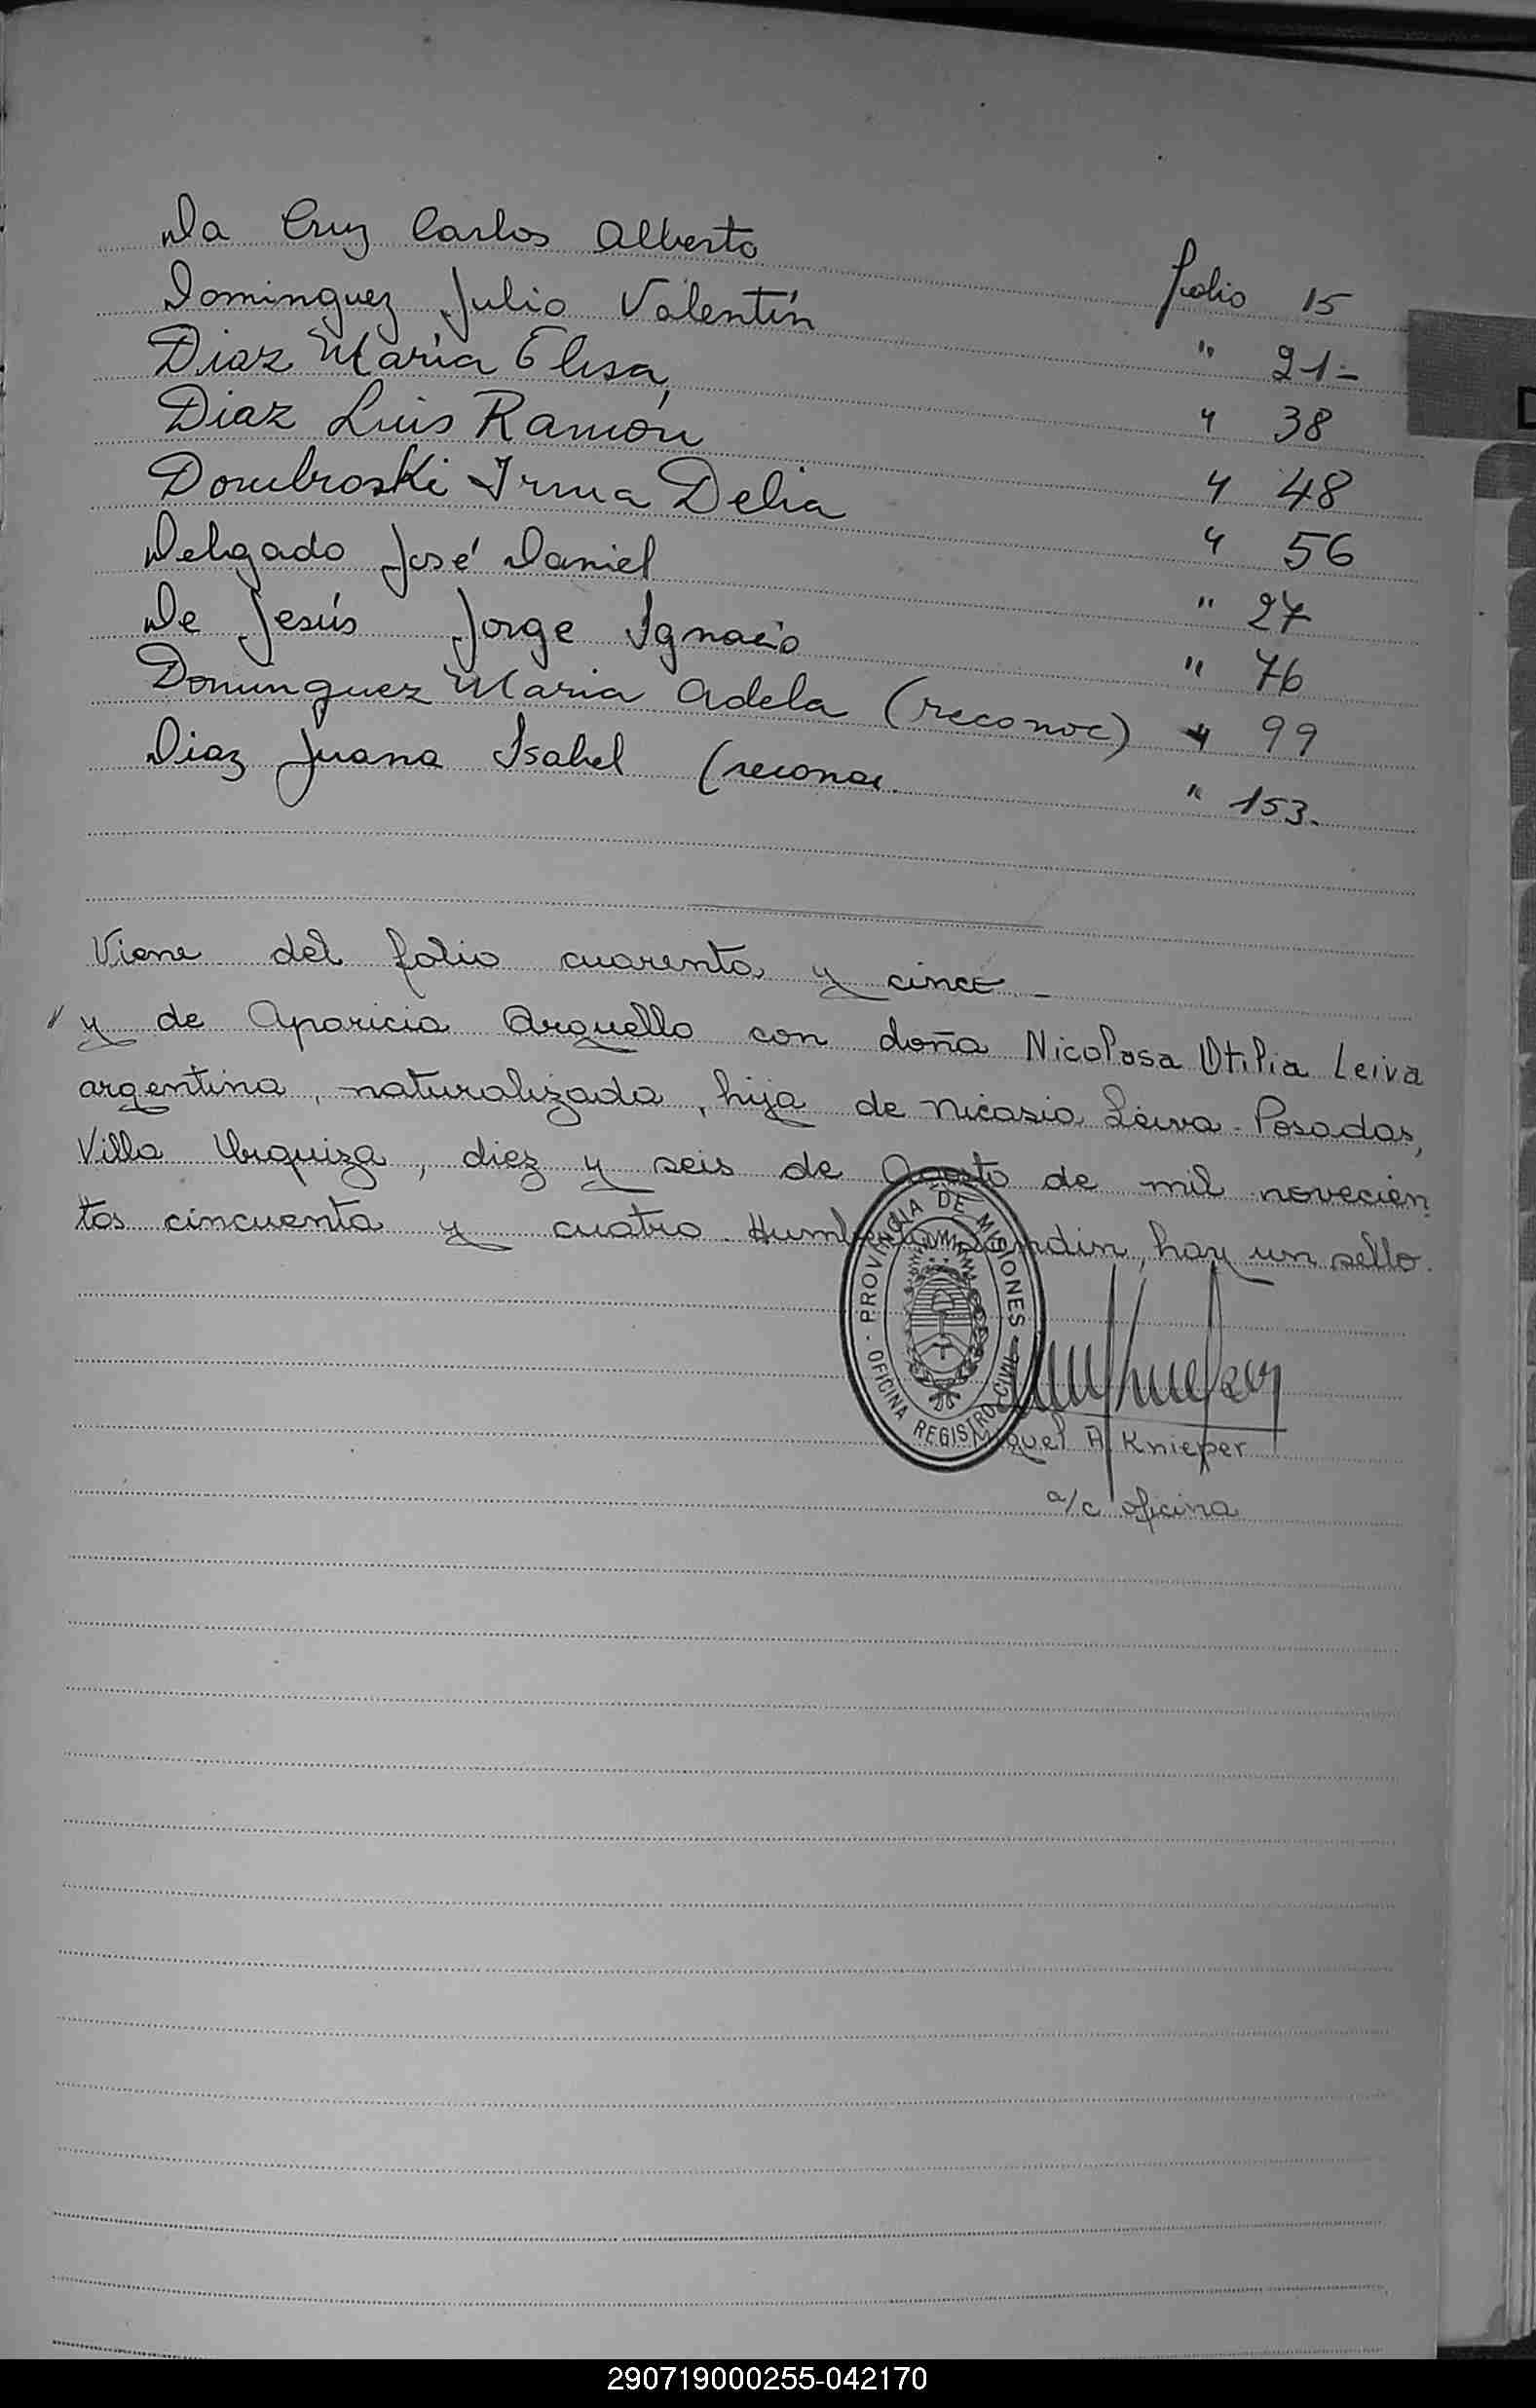 Da Cruz Carlos Alberto folio 15
Dominguez Julio Valentín " 21-
Diaz María Elisa " 38
Diaz Luis Ramón " 48
Dombroski Irma Delia " 56
Delgado José Daniel " 27
De Jesús Jorge Ignacio " 76
Dominguez Maria Adela (reconoc) " 99
Diaz Juana Isabel (reconoc. " 153.
Viene del folio cuarenta y cinco -
y de Aparicia Arguello con doña Nicolasa Otilia Leiva
argentina, naturalizada, hija de Nicasio Leiva - Posadas,
Villa Urquiza, diez y seis de Agosto de mil novecien
tos cincuenta y cuatro. Humberto hay un sello.
PROVINCIA DE MISIONES
OFICINA REGISTRO CIVIL
Miguel A. Knieper
a/c oficina
290719000255-042170